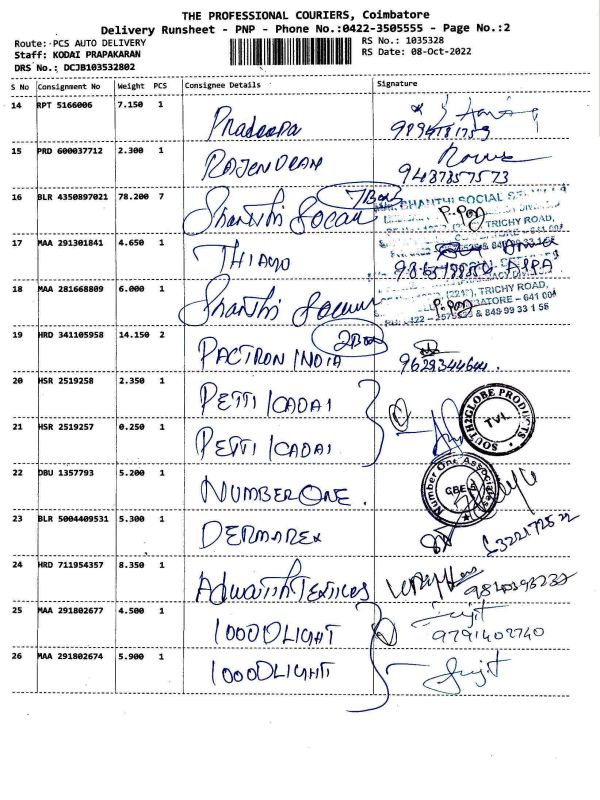 THE PROFESSIONAL COURIERS, Coimbatore
Delivery Runsheet - PNP - Phone No.:0422-3505555 - Page No.:2
Route: PCS AUTO DELIVERY
RS No.: 1035328
Staff: KODAI PRAPAKARAN
RS Date: 08-Oct-2022
DRS No.: DCJB103532802
S No Consignment No Weight PCS Consignee Details Signature
14 RPT 5166006 7.150 1 Pradeepa
15 PRD 600037712 2.300 1 RAJENDRAN 9487357573
16 BLR 4350897021 78.200 7 Shanthi Social 7Box
SHANTHI SOCIAL
TRICHY ROAD,
17 MAA 291301841 4.650 1 THIAGO
18 MAA 281668809 6.000 1 Shanthi Social
TRICHY ROAD,
& 849 99 33 1 56
19 HRD 341105958 14.150 2 PACTRON INDIA 2Box 9629344644
20 HSR 2519258 2.350 1 PETTI KADAI
21 HSR 2519257 0.250 1 PETTI KADAI
SOUTH2GLOBE PRODUCTS
TVL
22 DBU 1357793 5.200 1 NUMBER ONE.
Number One Associates
CBE
23 BLR 5004409531 5.300 1 DERMAREX
24 HRD 711954357 8.350 1 Adwaith Textiles
25 MAA 291802677 4.500 1 1000DLIGHT Sujit
9791402740
26 MAA 291802674 5.900 1 1000DLIGHT Sujit